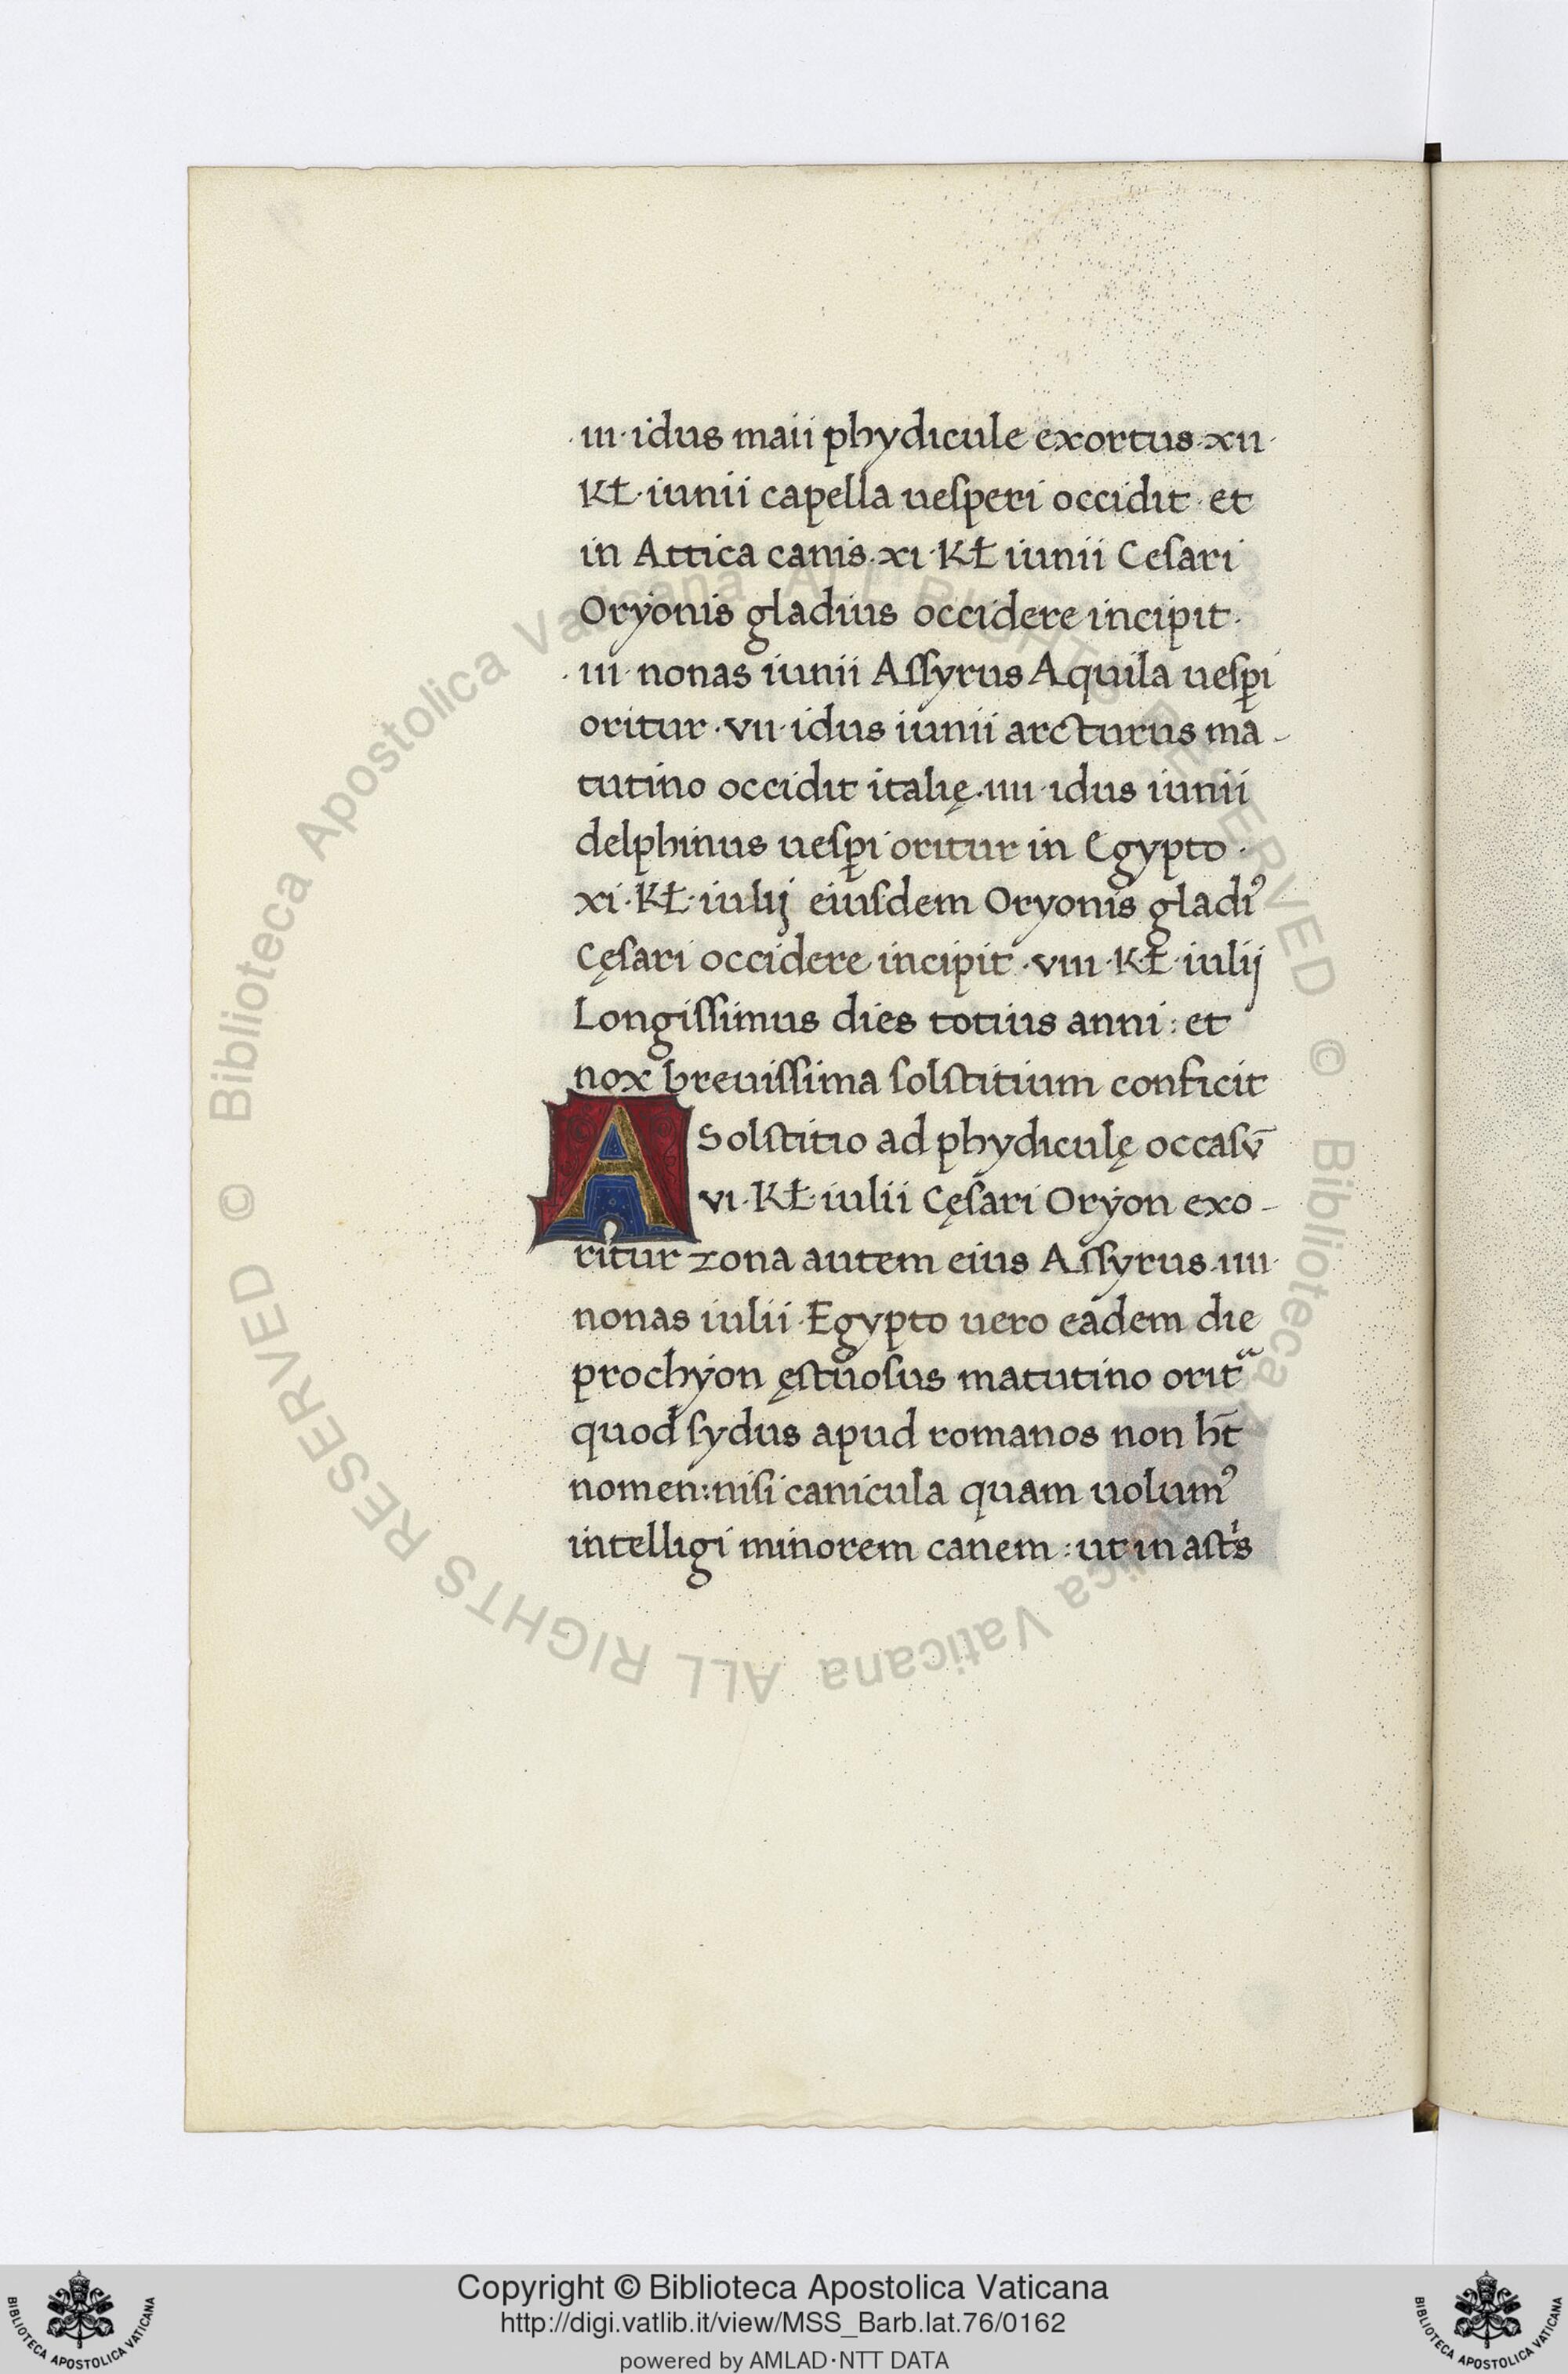 ·iii· idus maii phydicule exortus·xii·
Kł·iunii capella uesperi occidit·et
in Attica canis·xi·Kł iunii Cesari
Oryonis gladius occidere incipit·
·iii· nonas iunii Assyrus Aquila uesꝑi
oritur·vii·idus iunii arcturus ma-
tutino occidit italię·iiii·idus iunii
delphinus uesꝑi oritur in Egypto·
xi·Kł·iulij eiusdem Oryonis gladiꝰ
Cęsari occidere incipit·viii·Kł·iulij
Longissimus dies totius anni: et
nox breuissima solstitium conficit
A Solstitio ad phydiculę occasū
vi·Kł·iulii Cęsari Oryon exo-
ritur zona autem eius Assyrus·iiii·
nonas iulii·Egypto uero eadem die
prochyon ęstuosus matutino oritᵃ
quod sydus apud romanos non hт̄
nomen:nisi canicula quam uolumꝰ
intelligi minorem canem: ut in astⁱs
Copyright © Biblioteca Apostolica Vaticana
http://digi.vatlib.it/view/MSS_Barb.lat.76/0162
powered by AMLAD·NTT DATA
© Biblioteca Apostolica Vaticana ALL RIGHTS RESERVED © Biblioteca Apostolica Vaticana ALL RIGHTS RESERVED
BIBLIOTECA APOSTOLICA VATICANA
BIBLIOTECA APOSTOLICA VATICANA